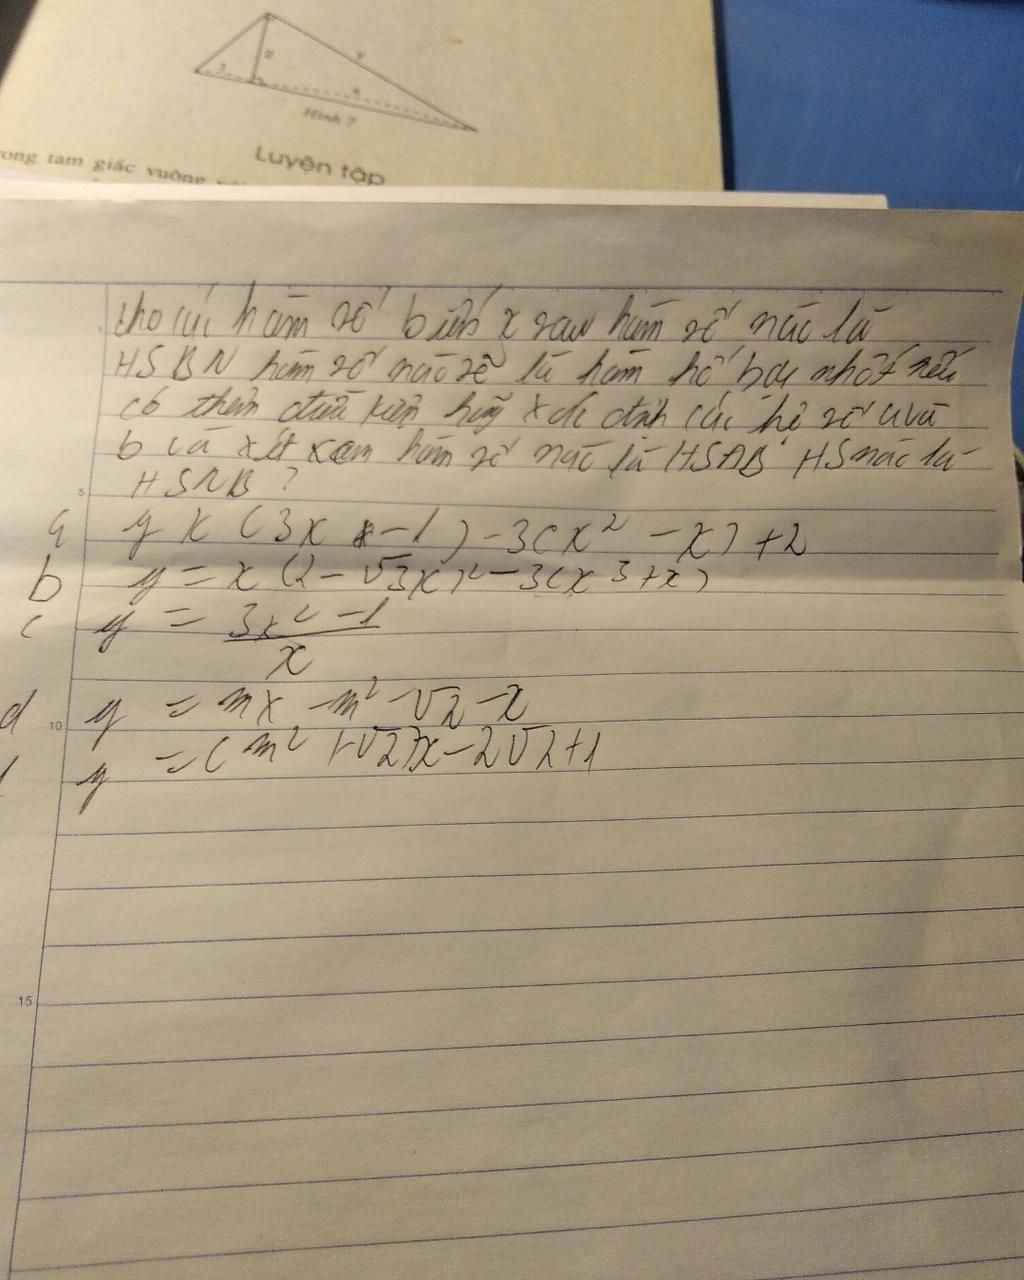 2
3
4
Hình ?
Luyện tập
rong tam giác vuông với
cho các hàm số biến x sau hàm số nào là
HSBN hàm số nào sẽ là hàm hố bậc nhất nếu
có thêm điều kiện hãy xác định các hệ số a và
b và xét xem hàm số nào là HSĐB HS nào là
5 HSNB ?
a y x (3x -1) -3(x² -x) +2
b y = x (2-√3x)² -3(x³+x)
c y = 3x²-1
x
d y = mx -m² -√2 -x
10
y = (m² +√2)x-2√2+1
15